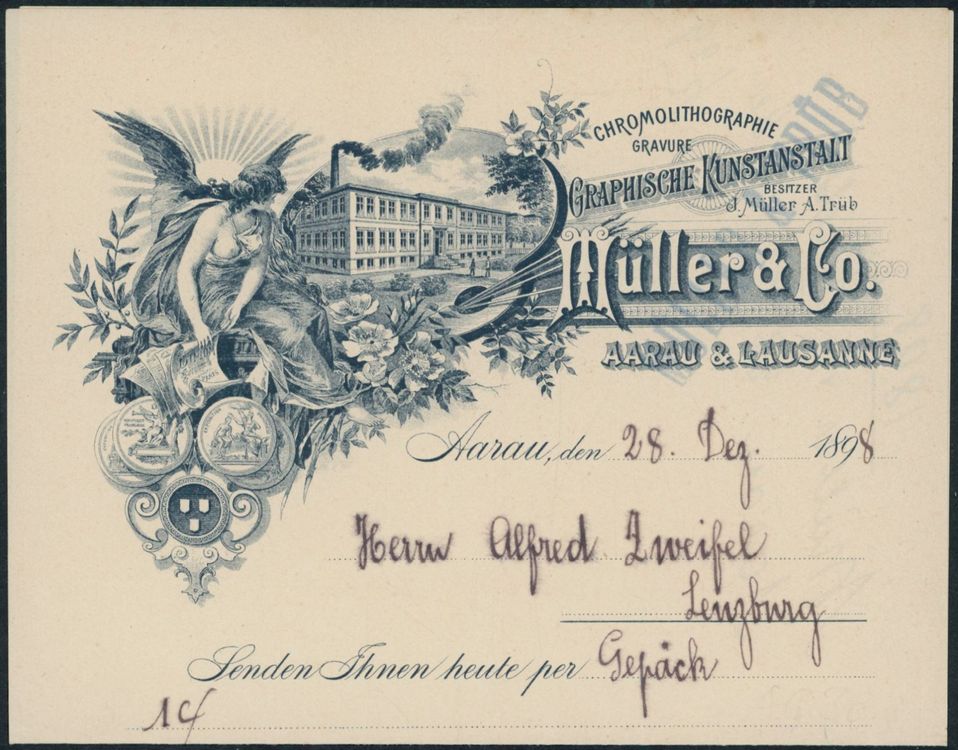 CHROMOLITHOGRAPHIE
GRAVURE
GRAPHISCHE KUNSTANSTALT
BESITZER
J. Müller A. Trüb
Müller & Co.
AARAU & LAUSANNE
Aarau, den 28. Dez. 1898
Herrn Alfred Zweifel
Lenzburg
Senden Ihnen heute per Gepäck